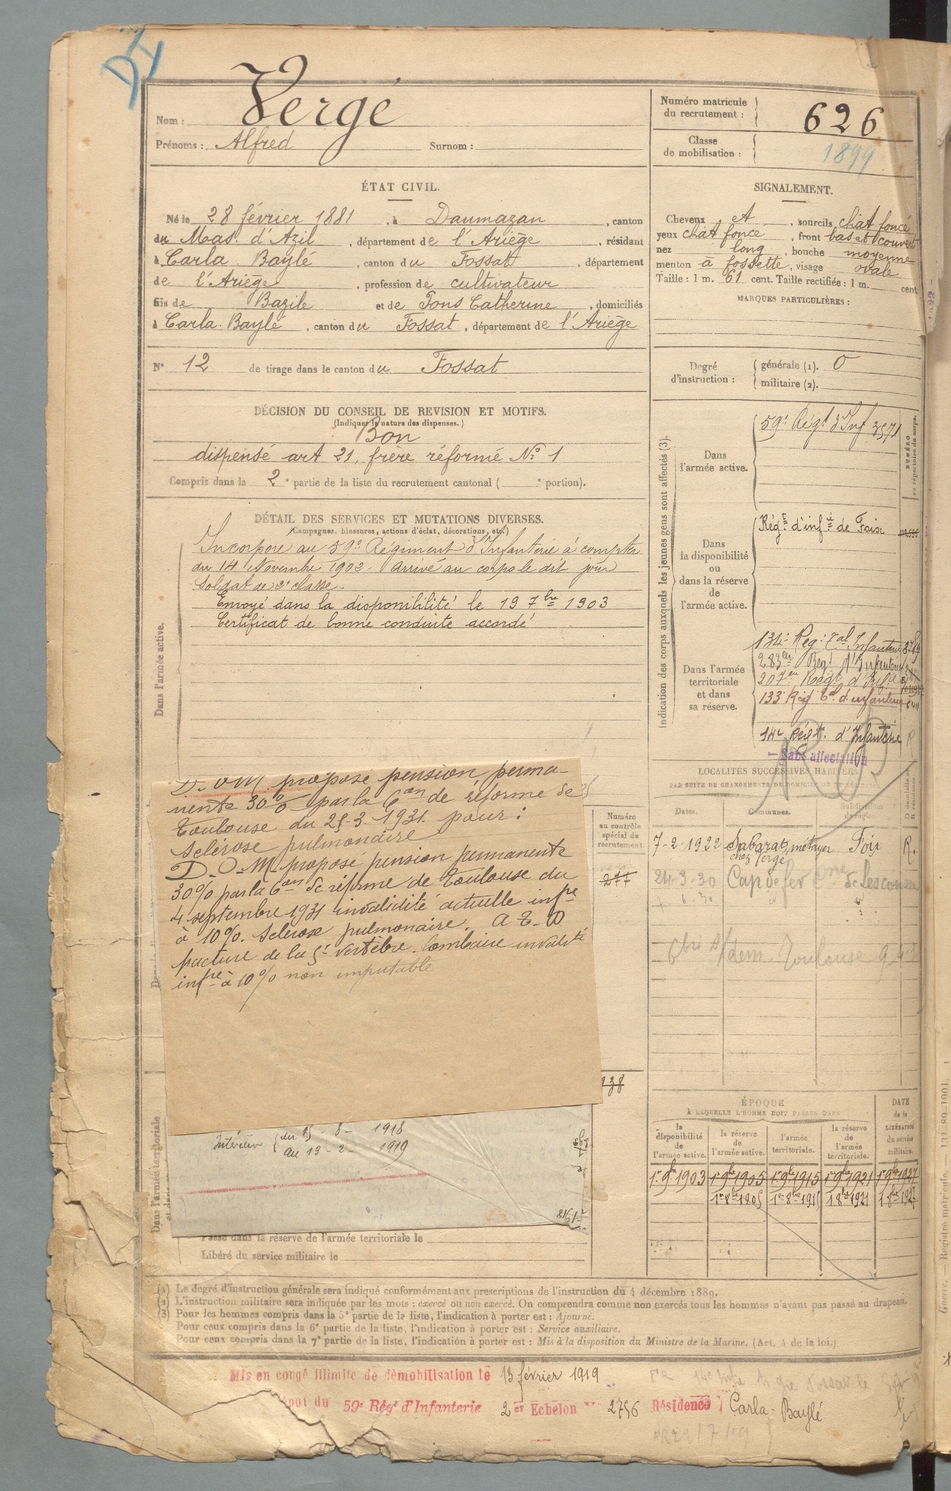 Vergé
Nom :
Prénoms : Alfred Surnom :
Numéro matricule
du recrutement : 626
Classe
de mobilisation : 1899
ÉTAT CIVIL.
Né le 28 février 1881, à Daumazan, canton
du Mas d'Azil, département de l'Ariège, résidant
à Carla Baylé, canton du Fossat, département
de l'Ariège, profession de cultivateur
fils de Bazile et de Pons Catherine, domiciliés
à Carla-Baylé, canton du Fossat, département de l'Ariège
N° 12 de tirage dans le canton du Fossat
SIGNALEMENT.
Cheveux , sourcils chat foncé
yeux chat foncé, front bas et couvert
nez long, bouche moyenne
menton à fossette, visage ovale
Taille : 1 m. 61 cent. Taille rectifiée : 1 m. cent.
MARQUES PARTICULIÈRES :
Degré
d'instruction :
générale (1). 0
militaire (2).
DÉCISION DU CONSEIL DE REVISION ET MOTIFS.
(Indiquer la nature des dispenses.)
Bon
dispensé art 21, frère réformé N° 1
Compris dans la 2e partie de la liste du recrutement cantonal ( e portion).
DÉTAIL DES SERVICES ET MUTATIONS DIVERSES.
(Campagnes, blessures, actions d'éclat, décorations, etc.)
Dans l'armée active.
Incorporé au 59e Régiment d'Infanterie à compter
du 14 Novembre 1902. Arrivé au corps le dit jour
soldat de 2e classe.
Envoyé dans la disponibilité le 19 7bre 1903
Certificat de bonne conduite accordé
Indication des corps auxquels les jeunes gens sont affectés (3).
Dans
l'armée active.
59e Régt d'Inf 3571
Dans
la disponibilité
ou
dans la réserve
de
l'armée active.
Régt d'infie de Foix
Dans l'armée
territoriale
et dans
sa réserve.
134e Rég: Tal Infanterie
283e Régt d'Infanterie
207e Régt d'Infie
133e Rég d'infanterie
14e Régt. d'Infanterie
Sans affectation
LOCALITÉS SUCCESSIVES HABITÉES
Dates. Communes. Subdivision
7-2-1922 Sabarat métayer Foix R.
chez Vergé
24-3-30 Cap de fer
Toulouse
D. O. M. propose pension perma-
nente 30% par la 6on de réforme de
Toulouse du 25-3-1931 pour :
Sclérose pulmonaire
D. O. M. propose pension permanente
30% par la 6on de réforme de Toulouse du
4 septembre 1931 invalidité actuelle infre
à 10%. Sclérose pulmonaire.
fracture de la 5e vertèbre lombaire invalidité
infre à 10% non imputable
Numéro
au contrôle
spécial de
recrutement.
277
138
Intérieur du 5-8-1918
au 13-2-1919
Dans l'armée territoriale
Passé dans la réserve de l'armée territoriale le
Libéré du service militaire le
ÉPOQUE
À LAQUELLE L'HOMME DOIT PASSER DANS
la
disponibilité
de
l'armée active.
la réserve
de
l'armée active.
l'armée
territoriale.
la réserve
de
l'armée
territoriale.
DATE
de la
LIBÉRATION
du service
militaire.
1er 9bre 1903 1er 9bre 1905 1er 9bre 1915 1er 9bre 1921 1er 9bre 1927
1er 8bre 1905 1er 8bre 1915 1er 8bre 1921
(1) Le degré d'instruction générale sera indiqué conformément aux prescriptions de l'instruction du 4 décembre 1889.
(2) L'instruction militaire sera indiquée par les mots : exercé ou non exercé. On comprendra comme non exercés tous les hommes n'ayant pas passé au drapeau.
(3) Pour les hommes compris dans la 5e partie de la liste, l'indication à porter est : Ajourné.
Pour ceux compris dans la 6e partie de la liste, l'indication à porter est : Service auxiliaire.
Pour ceux compris dans la 7e partie de la liste, l'indication à porter est : Mis à la disposition du Ministre de la Marine. (Art. 4 de la loi.)
Mis en congé illimité de démobilisation le 13 février 1919
Dépôt du 59e Régt d'Infanterie 2e Echelon N° 2756 Résidence Carla-Baylé